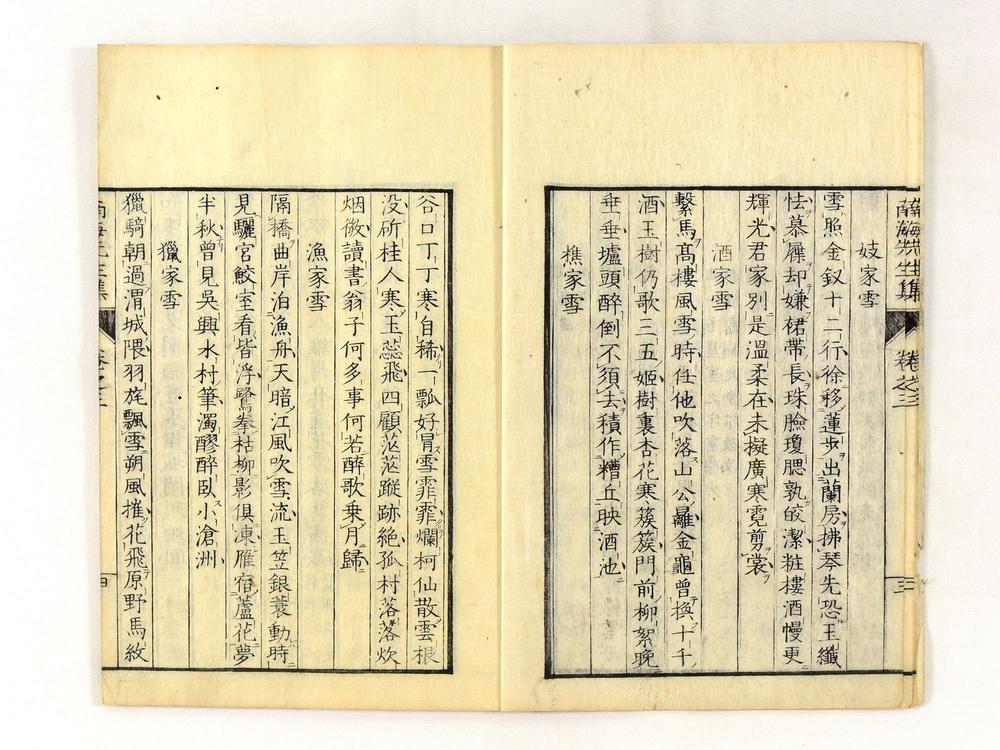 南海先生集 卷之三 三
妓家雪
雪照金釵十二行徐移蓮步出蘭房拂琴先恐玉纖
怯慕屧却嫌裙帶長珠臉瓊腮孰皎潔粧樓酒幔更
輝光君家別是溫柔在未擬廣寒霓剪裳
酒家雪
繫馬髙樓風雪時任他吹落山公䍦金龜曾換十千
酒玉樹仍歌三五姬樹裏杏花寒簇簇門前柳絮晚
垂垂壚頭醉倒不須去積作糟丘映酒池
樵家雪
谷口丁丁寒自稀一瓢好冒雪霏霏爛柯仙散雲根
没斫桂人寒玉蕊飛四顧茫茫蹤跡絶孤村落落炊
烟微讀書翁子何多事何若醉歌乗月歸
漁家雪
隔橋曲岸泊漁舟天暗江風吹雪流玉笠銀蓑動時
見驪宮鮫室看皆浮鷺拳枯柳影俱凍雁宿蘆花夢
半秋曾見吳興水村筆濁醪醉臥小滄洲
獵家雪
獵騎朝過渭城隈羽旄飄雪朔風摧花飛原野馬蚊
南海先生集 卷之三 四